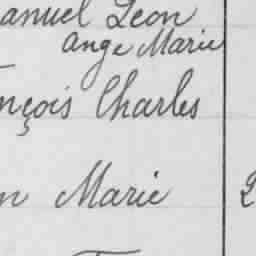 anuel Leon
Ange Marie
nçois Charles
n Marie 2